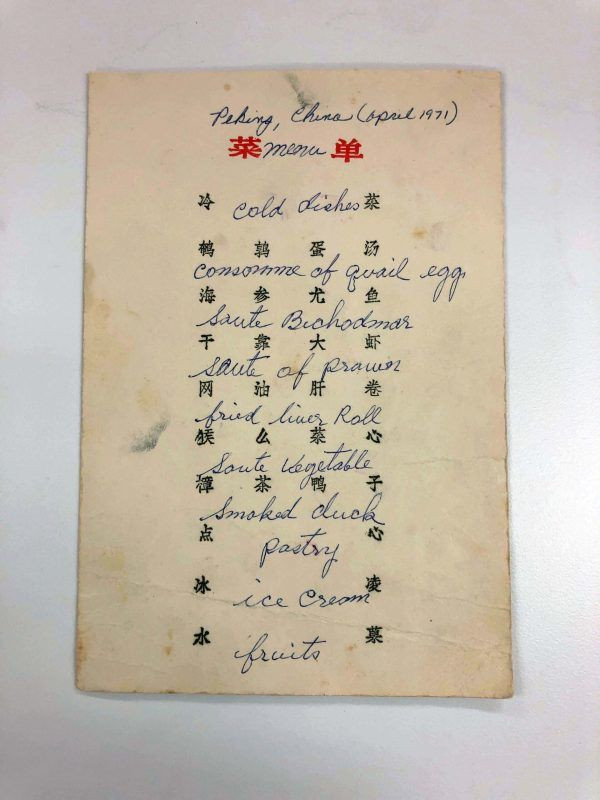 Peking, China (april 1971)
菜 menu 单
冷 菜
cold dishes
鹌 鹑 蛋 汤
consomme of quail egg
海 参 尤 鱼
Saute Bichodmar
干 靠 大 虾
saute of prawn
网 油 肝 卷
fried liver Roll
么 菜 心
Saute Vegetable
漳 茶 鸭 子
Smoked duck
点 心
Pastry
冰 凌
ice cream
水 菓
fruits